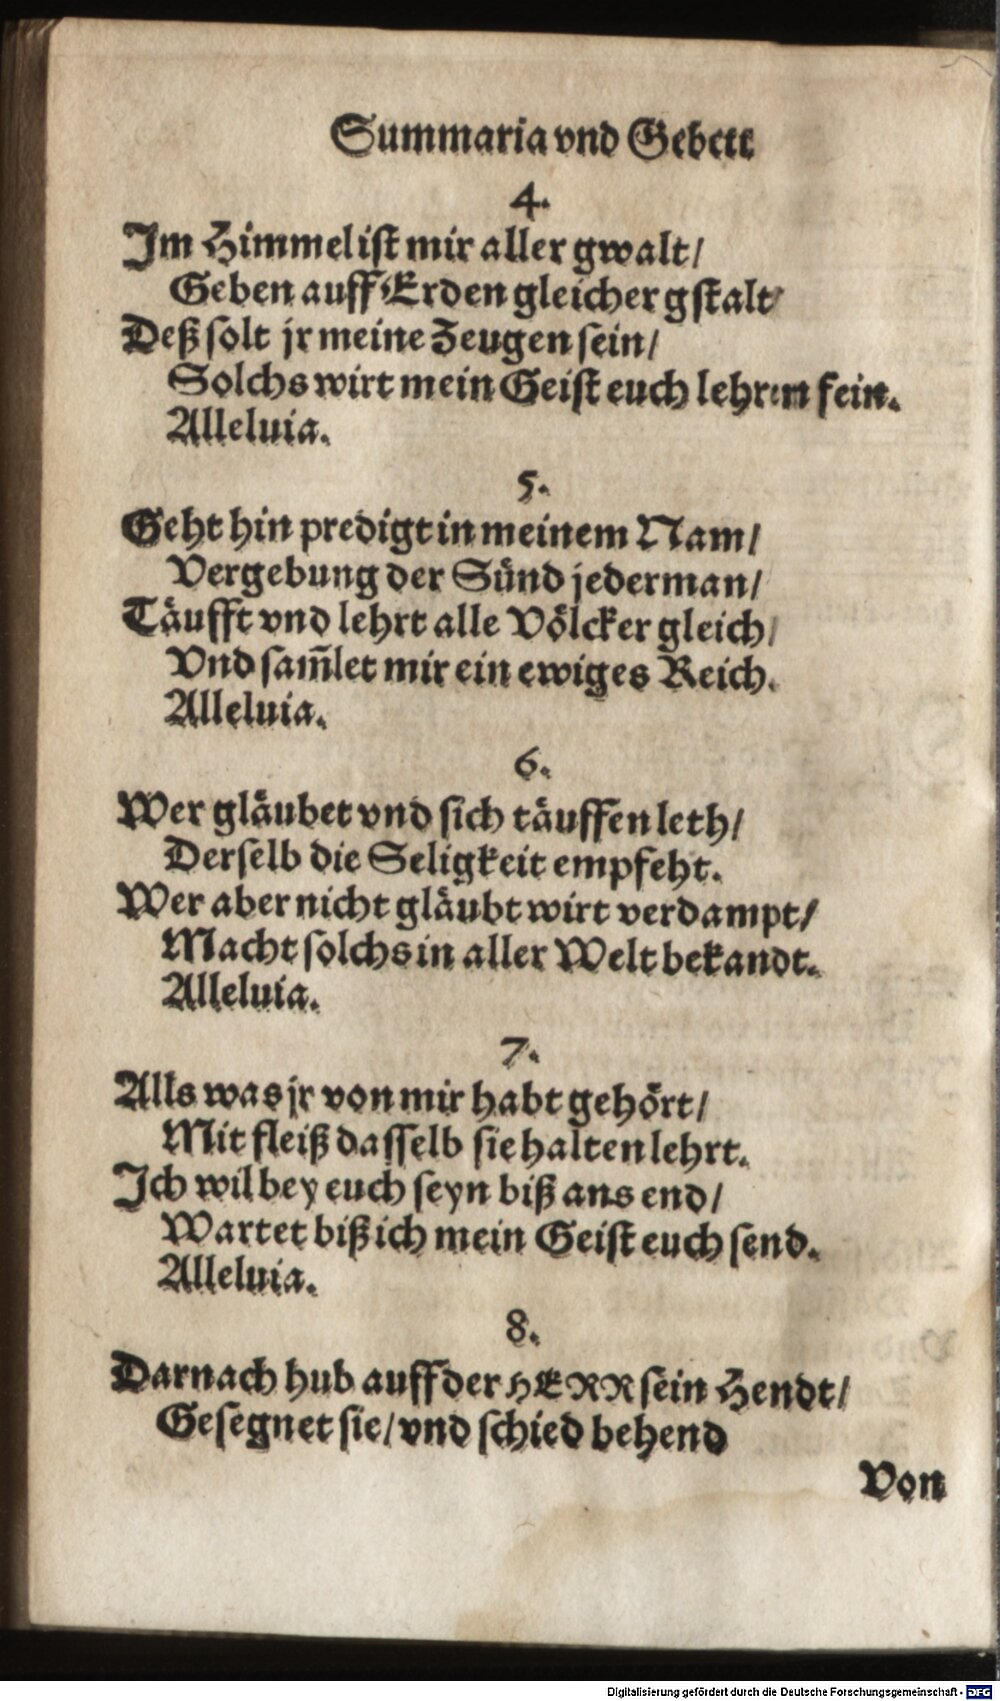 Summaria vnd Gebett
4.
Im Himmel ist mir aller gwalt/
Geben auff Erden gleicher gstalt/
Deß solt jr meine Zeugen sein/
Solchs wirt mein Geist euch lehren fein.
Alleluia.
5.
Geht hin predigt in meinem Nam/
Vergebung der Sünd jederman/
Täufft vnd lehrt alle Völcker gleich/
Vnd sam̄let mir ein ewiges Reich.
Alleluia.
6.
Wer gläubet vnd sich täuffen leth/
Derselb die Seligkeit empfeht.
Wer aber nicht gläubt wirt verdampt/
Macht solchs in aller Welt bekandt.
Alleluia.
7.
Alls was jr von mir habt gehört/
Mit fleiß dasselb sie halten lehrt.
Ich wil bey euch seyn biß ans end/
Wartet biß ich mein Geist euch send.
Alleluia.
8.
Darnach hub auff der HERR sein Hendt/
Gesegnet sie/ vnd schied behend
Von
Digitalisierung gefördert durch die Deutsche Forschungsgemeinschaft - DFG